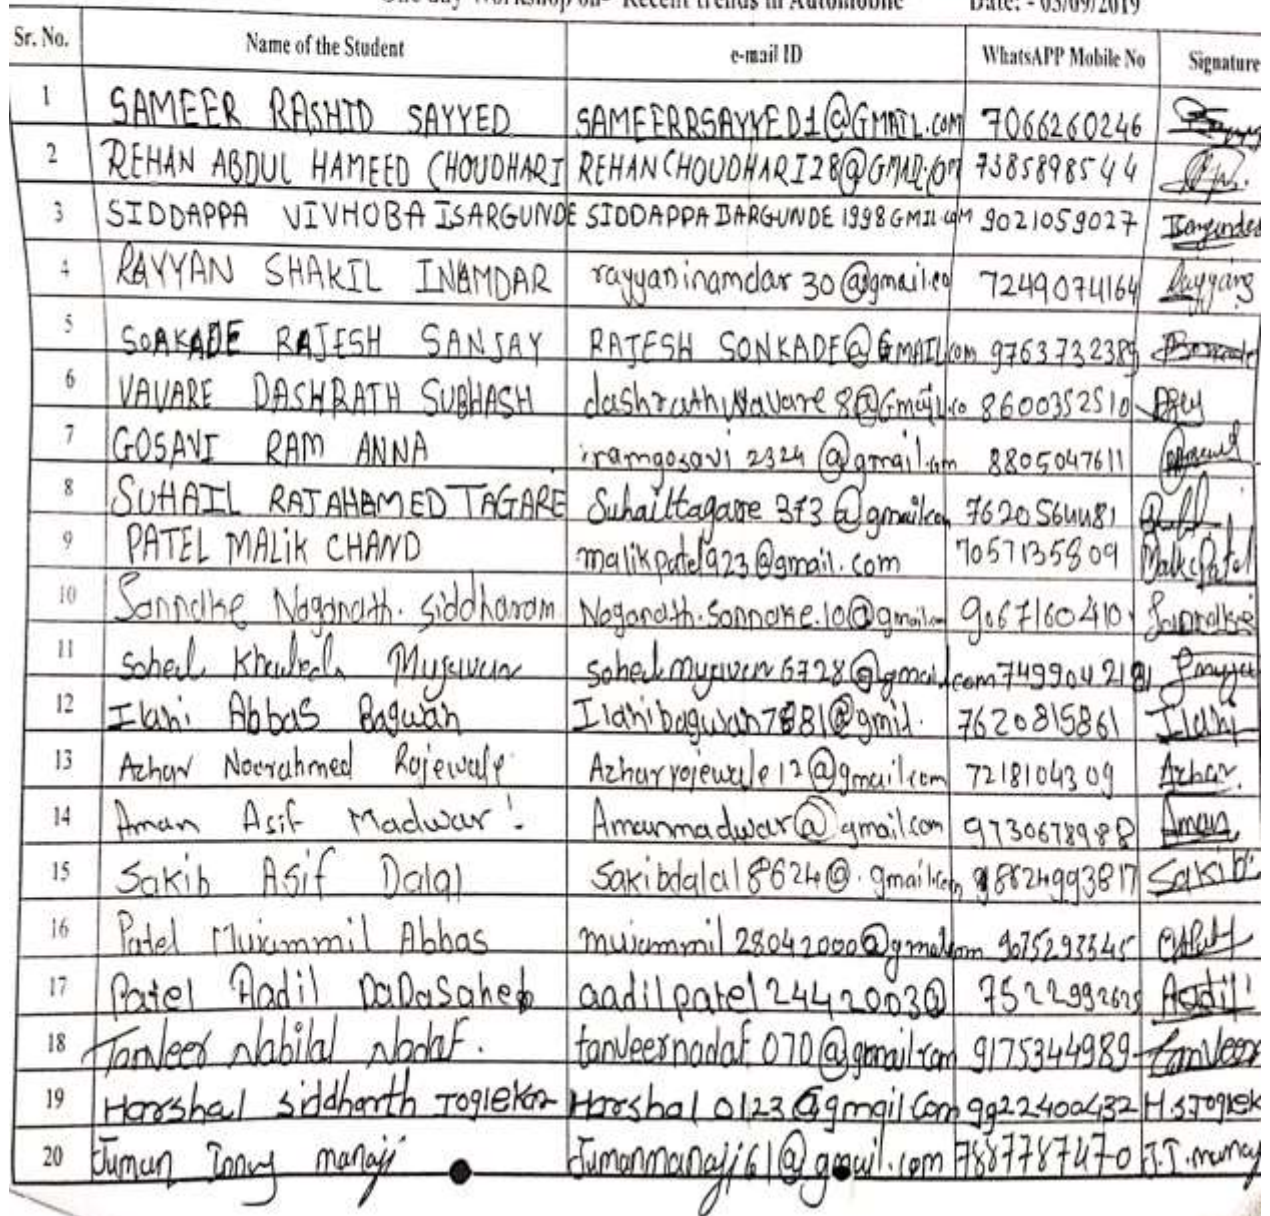 One day Workshop on- Recent trends in Automobile Date: - 03/09/2019
Sr. No. Name of the Student e-mail ID WhatsAPP Mobile No Signature
1 SAMEER RASHID SAYYED SAMEERRSAYYED1@GMAIL.com 7066260246
2 REHAN ABDUL HAMEED CHOUDHARI REHANCHOUDHARI28@GMAIL.COM 7385898544
3 SIDDAPPA VIVHOBA ISARGUNDE SIDDAPPABARGUNDE1998GMIL.com 9021059027 Isargunde
4 RAYYAN SHAKIL INAMDAR rayyaninamdar30@gmail.co 7249074164
5 SOAKADE RAJESH SANJAY RAJESH SONKADE@GMAIL.com 9763732389
6 VAVARE DASHRATH SUBHASH dashrathvavare8@Gmail.co 8600352510
7 GOSAVI RAM ANNA ramgosavi2324@gmail.com 8805047611
8 SUHAIL RAJAHAMED TAGARE Suhailtagare373@gmail.com 7620564481
9 PATEL MALIK CHAND malikpatel923@gmail.com 7057135809 Malik Patel
10 Sannake Naganath. siddharam Naganath.sannake.10@gmail.com 9067160410 Sannake
11 Soheil Khaleel Mujawar 6728@gmail.com
12 Ilahi Abbas Bagwan Ilahibagwan7881@gmil. 7620815861 Ilahi
13 Azhar Noorahmed Rajewale Azharrojewale12@gmail.com 7218104309 Azhar.
14 Aman Asif Madwar Amanmadwar@gmail.com 9730678988 Aman
15 Sakib Asif Dalal Sakibdalal8624@.gmail.com 8624993817 Sakib
16 Patel Mujammil Abbas mujammil28042000@gmail.com 9075297345
17 Patel Aadil DaDaSaheb aadilpatel2442003@ 7522992625 Aadil
18 Tanveer Nabilal Nadaf. tanveernadaf070@gmail.com 9175344989 Tanveer
19 Harshal siddharth Joglekar Harshal0123@gmail.com 9922400432 H.S.Joglek
20 Juman manaji Jumanmanaji61@gmail.com 7887787470 J.J.manaj